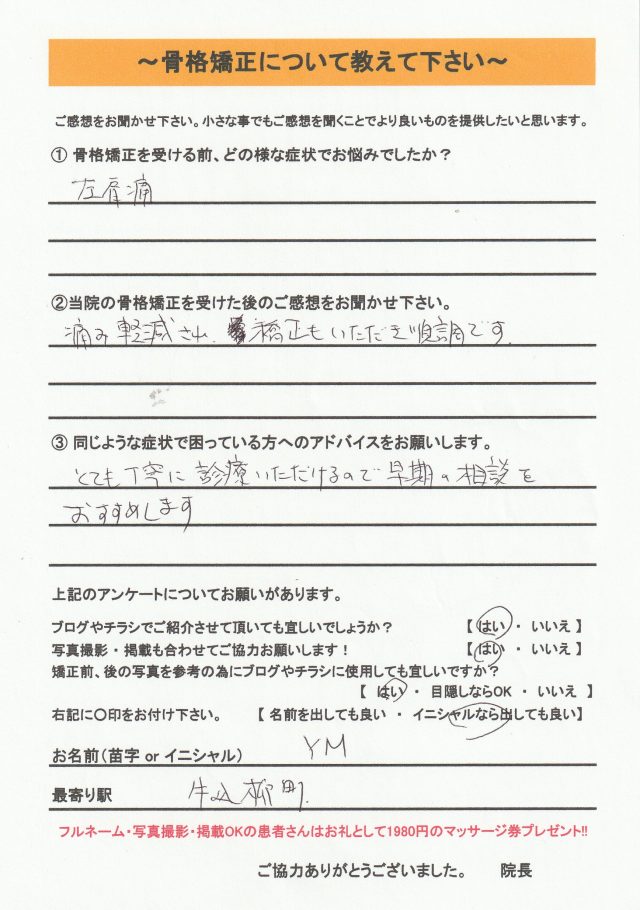 ～骨格矯正について教えて下さい～
ご感想をお聞かせ下さい。小さな事でもご感想を聞くことでより良いものを提供したいと思います。
① 骨格矯正を受ける前、どの様な症状でお悩みでしたか？
左肩痛
②当院の骨格矯正を受けた後のご感想をお聞かせ下さい。
痛み軽減され、矯正もいただき順調です。
③ 同じような症状で困っている方へのアドバイスをお願いします。
とても丁寧に診療いただけるので早期の相談を
おすすめします
上記のアンケートについてお願いがあります。
ブログやチラシでご紹介させて頂いても宜しいでしょうか？ 【 はい ・ いいえ 】
写真撮影・掲載も合わせてご協力お願いします！ 【 はい ・ いいえ 】
矯正前、後の写真を参考の為にブログやチラシに使用しても宜しいですか？
【 はい ・ 目隠しならOK ・ いいえ 】
右記に〇印をお付け下さい。 【 名前を出しても良い ・ イニシャルなら出しても良い】
お名前（苗字 or イニシャル） YM
最寄り駅 牛込柳町
フルネーム・写真撮影・掲載OKの患者さんはお礼として1980円のマッサージ券プレゼント!!
ご協力ありがとうございました。 院長